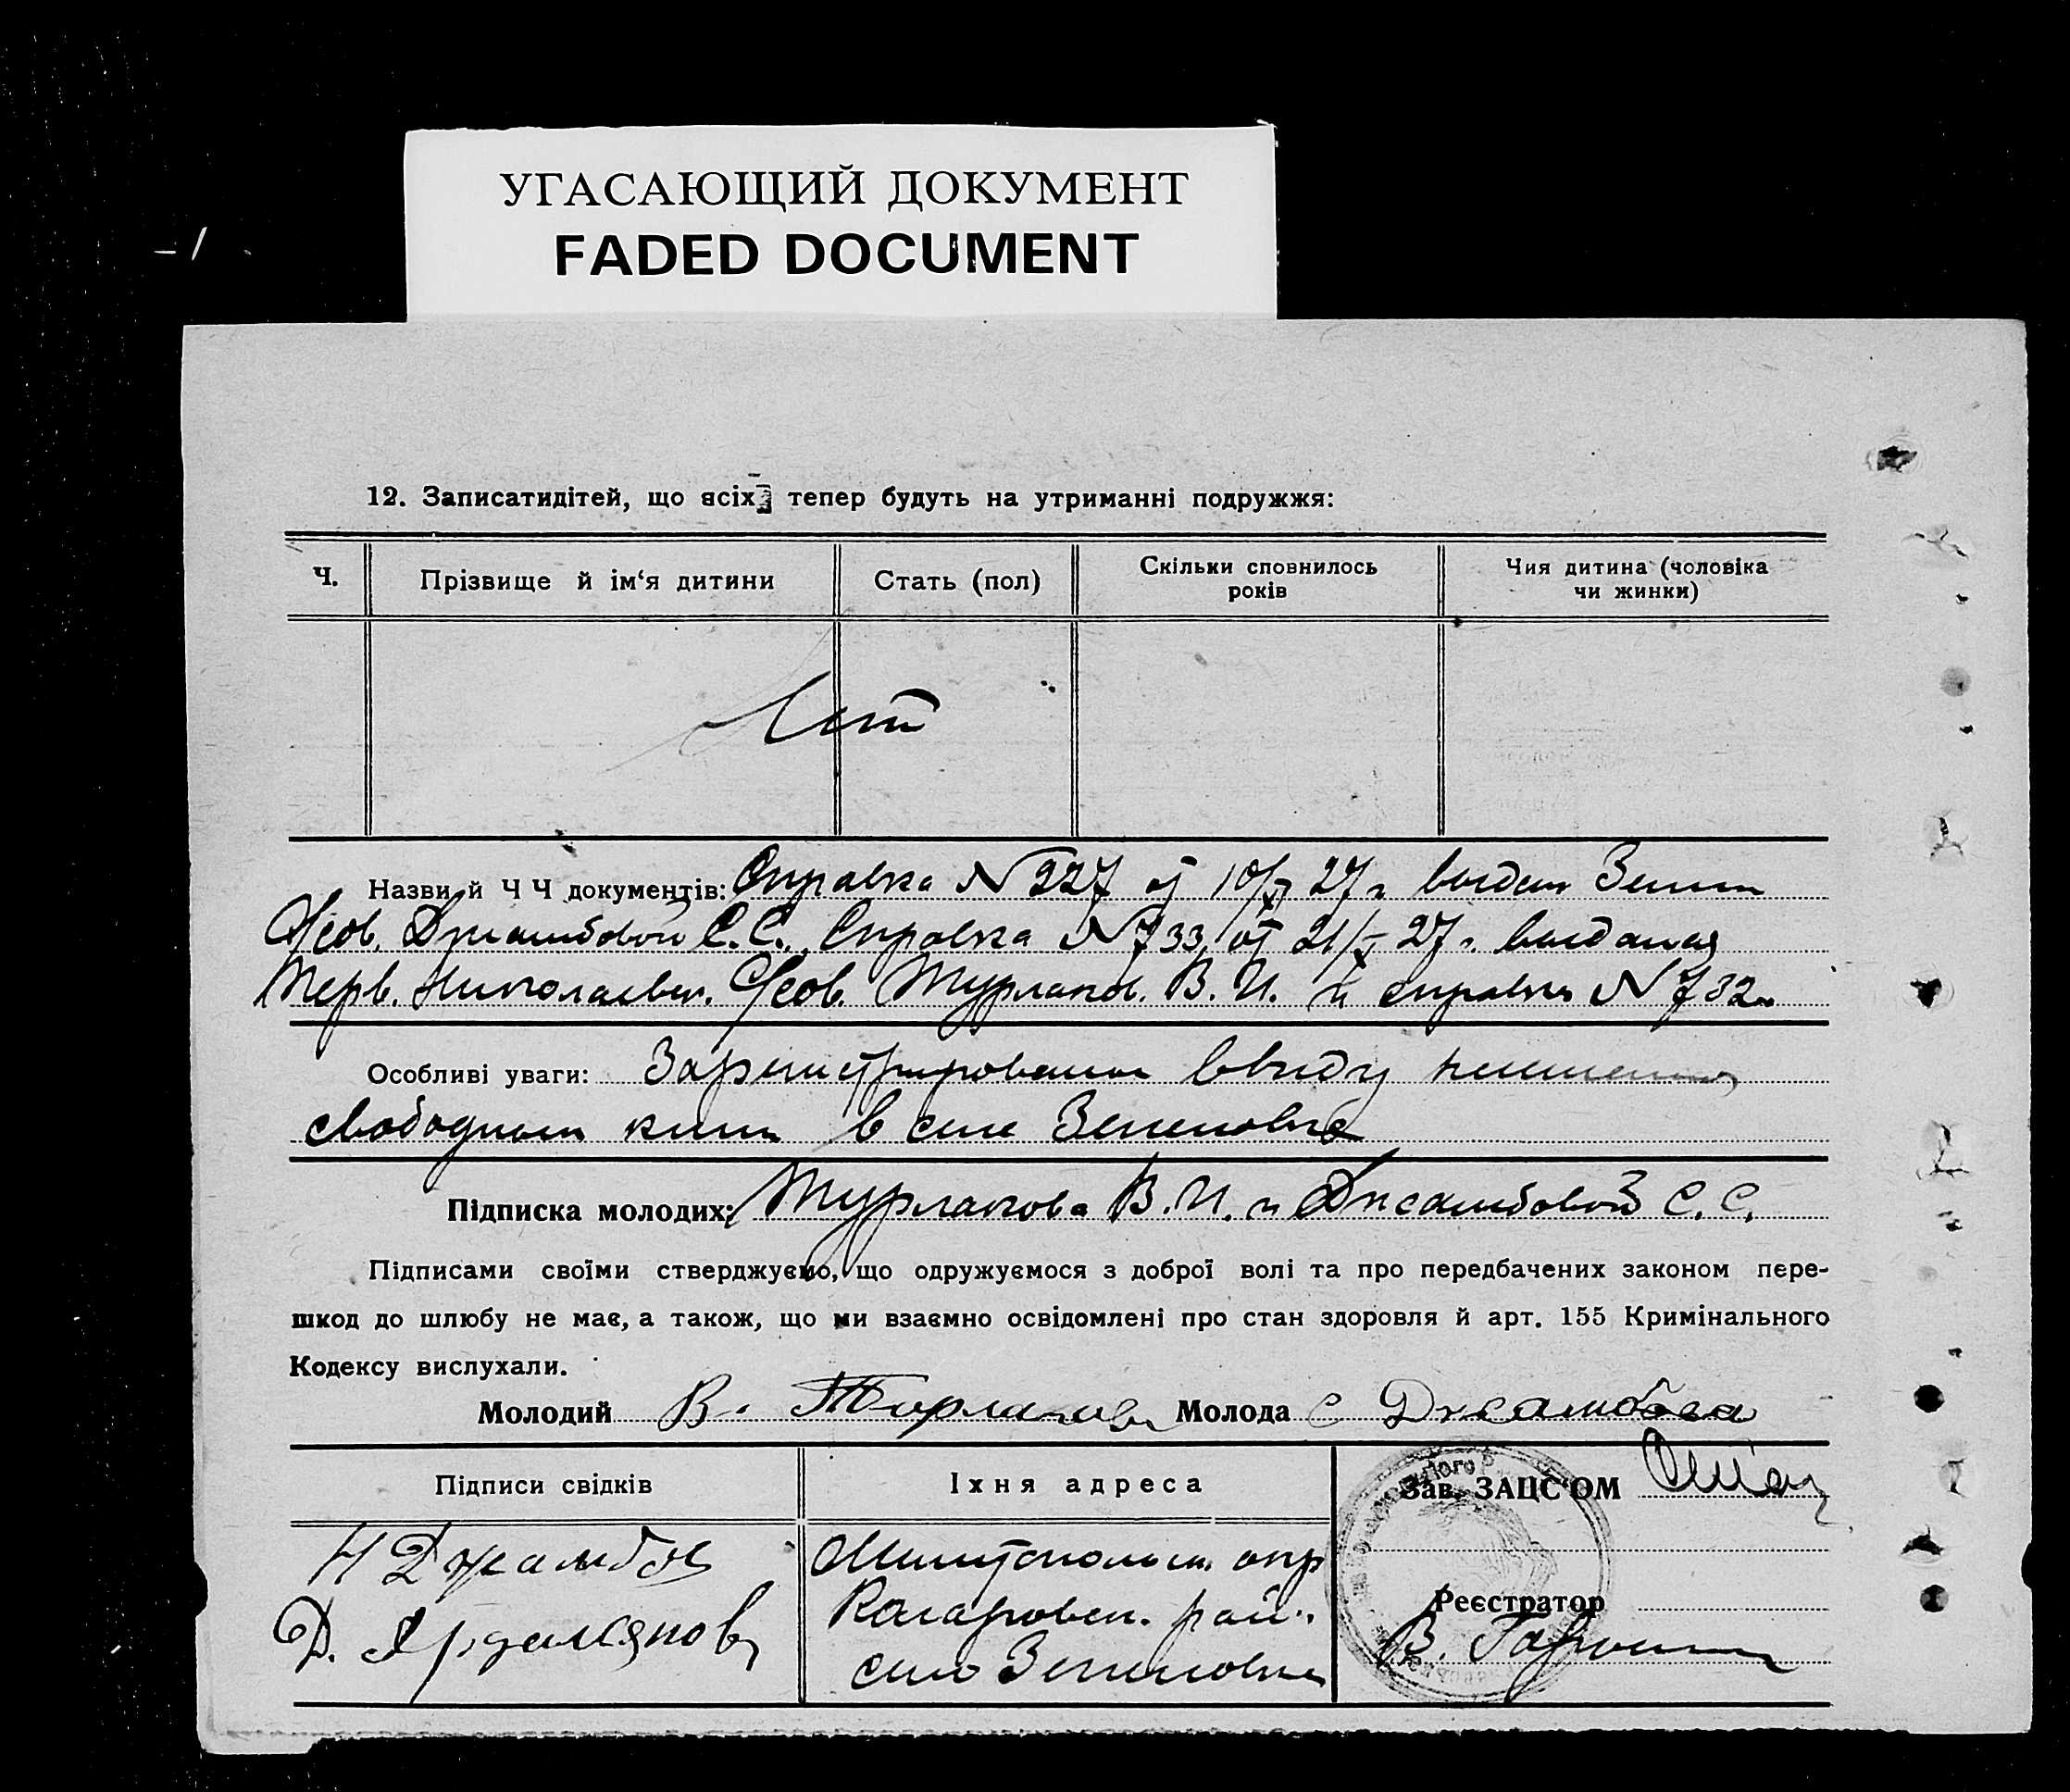 УГАСАЮЩИЙ ДОКУМЕНТ
FADED DOCUMENT
12. Записатидітей, що всіх тепер будуть на утриманні подружжя:
Ч.
Прізвище й ім‘я дитини
Стать (пол)
Скільки сповнилось
років
Чия дитина (чоловіка
чи жинки)
Нет
Назви й Ч Ч документів: Справка N 227 от 10/X 27 г. выдан
Джамбовой С.С. Справка N 733 от 21/X 27 г. выданая
Перв. Николаевск. Турлаков. В. И. и справка N 732
Особливі уваги: Зарегистрирована ввиду неимения
свободных книг в селе Зеленовке
Підписка молодих: Турлакова В. И. и Джамбовой С. С.
Підписами своїми стверджуємо, що одружуємося з доброї волі та про передбачених законом пере-
шкод до шлюбу не має, а також, що ми взаємно освідомлені про стан здоров‘я й арт. 155 Кримінального
Кодексу вислухали.
Молодий В. Турлаков Молода С Джамбова
Підписи свідків
Їхня адреса
Зав. ЗАЦС‘ОМ
Н Джамбов
Д. Ярдамянов
Мелитопольск. окр
район
село Зеленовка
Реєстратор
В.